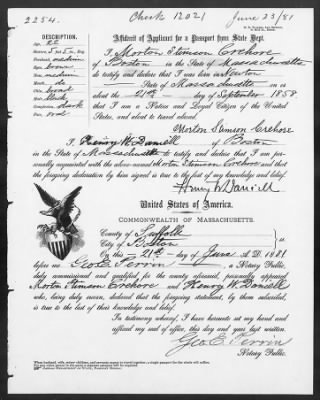 2254.
Check 12021
June 23/81
DESCRIPTION.
Age, 22
Stature, 5 ft 5 in. Eng.
Forehead, medium
Eyes, brown
Nose, medium
Mouth, do
Chin, broad
Hair, black
Complexion, dark
Face, oval
Affidavit of Applicant for a Passport from State Dept.
I, Morton Stimson Crehore
of Boston in the State of Massachusetts
do testify and declare that I was born in Newton
in the State of Massachusetts on
about the 21st day of September 1858
that I am a Native and Loyal Citizen of the United
States, and about to travel abroad.
Morton Stimson Crehore
I, Henry W. Daniell of Boston
in the State of Massachusetts to testify and declare that I am per-
sonally acquainted with the above-named Morton Stimson Crehore and that
the foregoing declaration by him signed is true to the best of my knowledge and belief.
Henry W. Daniell
United States of America.
COMMONWEALTH OF MASSACHUSETTS.
County of Suffolk
City of Boston } ss
On this 21st day of June A.D. 1881
before me Geo. E. Perrin, a Notary Public,
duly commissioned and qualified for the county aforesaid, personally appeared
Morton Stimson Crehore and Henry W. Daniell
who, being duly sworn, declared that the foregoing statement, by them subscribed,
is true to the best of their knowledge and belief.
In testimony whereof, I have hereunto set my hand and
affixed my seal of office, this day and year last written.
Geo. E. Perrin
Notary Public.